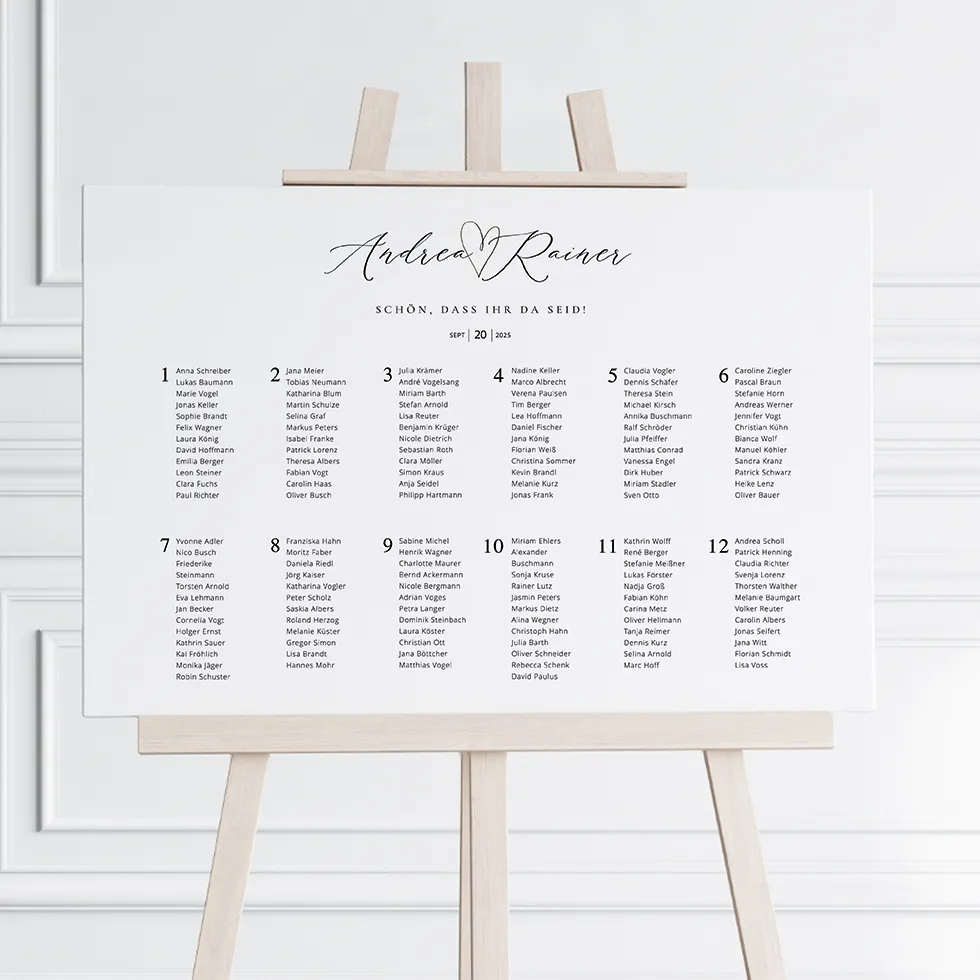 Andrea Rainer
SCHÖN, DASS IHR DA SEID!
SEPT | 20 | 2025
1
Anna Schreiber
Lukas Baumann
Marie Vogel
Jonas Keller
Sophie Brandt
Felix Wagner
Laura König
David Hoffmann
Emilia Berger
Leon Steiner
Clara Fuchs
Paul Richter
2
Jana Meier
Tobias Neumann
Katharina Blum
Martin Schulze
Selina Graf
Markus Peters
Isabel Franke
Patrick Lorenz
Theresa Albers
Fabian Vogt
Carolin Haas
Oliver Busch
3
Julia Krämer
André Vogelsang
Miriam Barth
Stefan Arnold
Lisa Reuter
Benjamin Krüger
Nicole Dietrich
Sebastian Roth
Clara Möller
Simon Kraus
Anja Seidel
Philipp Hartmann
4
Nadine Keller
Marco Albrecht
Verena Paulsen
Tim Berger
Lea Hoffmann
Daniel Fischer
Jana König
Florian Weiß
Christina Sommer
Kevin Brandl
Melanie Kurz
Jonas Frank
5
Claudia Vogler
Dennis Schäfer
Theresa Stein
Michael Kirsch
Annika Buschmann
Ralf Schröder
Julia Pfeiffer
Matthias Conrad
Vanessa Engel
Dirk Huber
Miriam Stadler
Sven Otto
6
Caroline Ziegler
Pascal Braun
Stefanie Horn
Andreas Werner
Jennifer Vogt
Christian Kühn
Bianca Wolf
Manuel Köhler
Sandra Kranz
Patrick Schwarz
Heike Lenz
Oliver Bauer
7
Yvonne Adler
Nico Busch
Friederike
Steinmann
Torsten Arnold
Eva Lehmann
Jan Becker
Cornelia Vogt
Holger Ernst
Kathrin Sauer
Kai Fröhlich
Monika Jäger
Robin Schuster
8
Franziska Hahn
Moritz Faber
Daniela Riedl
Jörg Kaiser
Katharina Vogler
Peter Scholz
Saskia Albers
Roland Herzog
Melanie Küster
Gregor Simon
Lisa Brandt
Hannes Mohr
9
Sabine Michel
Henrik Wagner
Charlotte Maurer
Bernd Ackermann
Nicole Bergmann
Adrian Voges
Petra Langer
Dominik Steinbach
Laura Köster
Christian Ott
Jana Böttcher
Matthias Vogel
10
Miriam Ehlers
Alexander
Buschmann
Sonja Kruse
Rainer Lutz
Jasmin Peters
Markus Dietz
Alina Wegner
Christoph Hahn
Julia Barth
Oliver Schneider
Rebecca Schenk
David Paulus
11
Kathrin Wolff
René Berger
Stefanie Meißner
Lukas Förster
Nadja Groß
Fabian Köhn
Carina Metz
Oliver Hellmann
Tanja Reimer
Dennis Kurz
Selina Arnold
Marc Hoff
12
Andrea Scholl
Patrick Henning
Claudia Richter
Svenja Lorenz
Thorsten Walther
Melanie Baumgart
Volker Reuter
Carolin Albers
Jonas Seifert
Jana Witt
Florian Schmidt
Lisa Voss